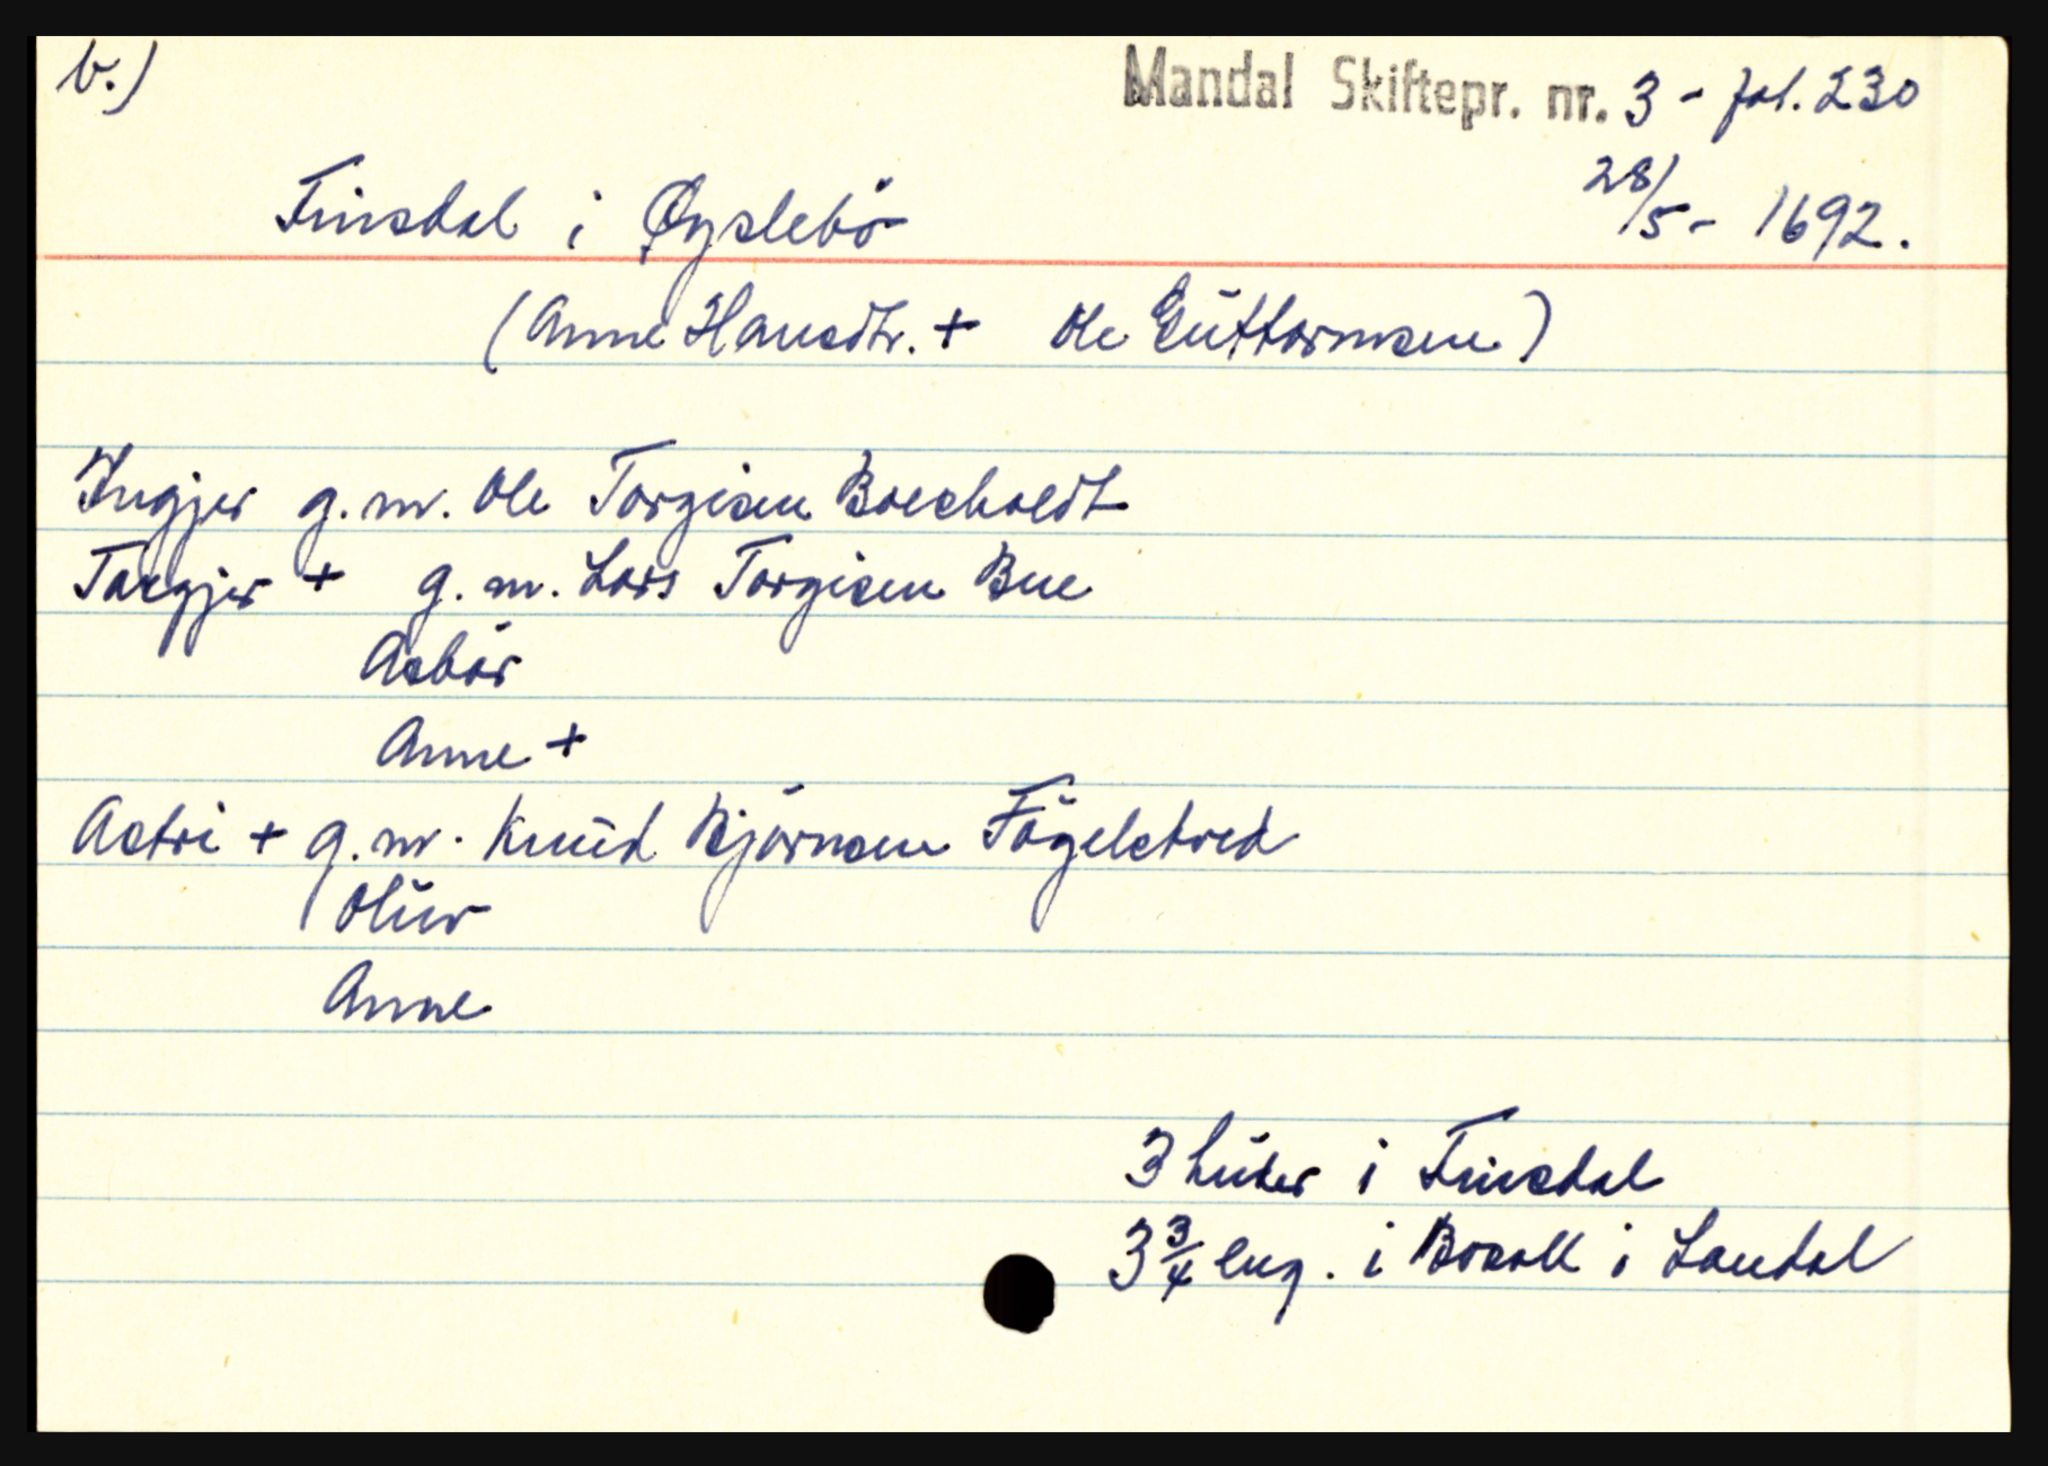 b.)
Mandal Skiftepr. nr. 3 - fol. 230
28/5 - 1692.
Finsdal i Øyslebö
(Anne Hansdtr. + Ole Guttormsen)
Ingjer g.m. Ole Torgisen Boesholdt
Targjer + g.m. Lars Torgisen Bue
Asbör
Anne +
Astri + g.m. Knud Björnsen Fögelstved
Oluv
Anne
3 huder i Finsdal
3 3/4 eng. i Bosoll i Laudal